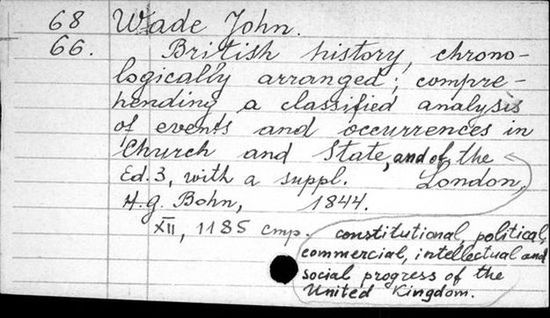 68 Wade John.
66. British history, chrono-
logically arranged; compre-
hending a classified analysis
of events and occurrences in
Church and State, and of the
Ed. 3, with a suppl. London,
H. G. Bohn, 1844.
XII, 1185 cmp.
constitutional, political,
commercial, intellectual and
social progress of the
United Kingdom.